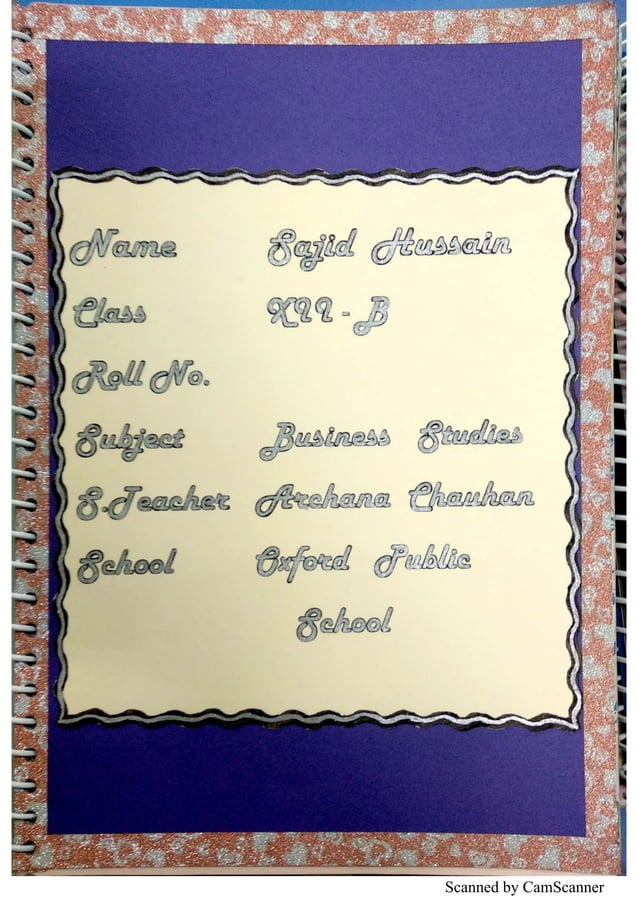 Name Sajid Hussain
Class XII - B
Roll No.
Subject Business Studies
S.Teacher Archana Chauhan
School Oxford Public
School
Scanned by CamScanner